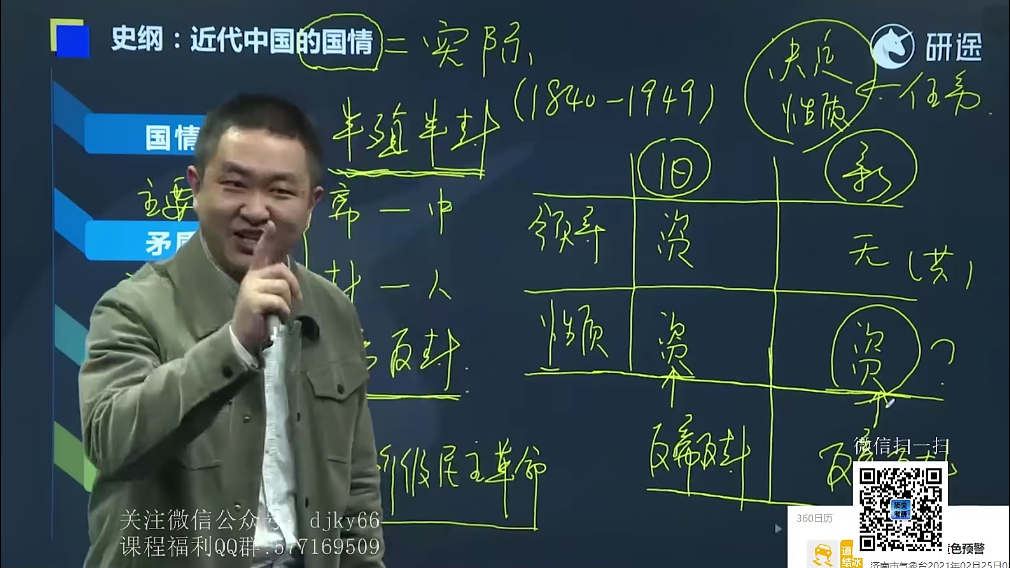 史纲：近代中国的国情
= 实际
研途
(1840—1949)
决定
性质
← 任务
国情
半殖半封
主要
帝—中
矛盾
封—人
反封
阶级民主革命
旧
新
领导
资
无(共)
性质
资
资?
反帝反封
微信扫一扫
关注微信公众号：djky66
课程福利QQ群:577169509
360日历
道路结冰
色预警
济南市气象台2021年02月25日0